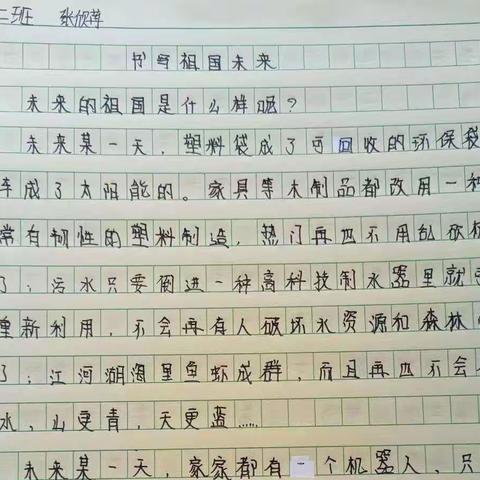 二班 张欣苹
书写祖国未来
未来的祖国是什么样呢？
未来某一天，塑料袋成了可回收的环保袋
车成了太阳能的。家具等木制品都改用一种
常有韧性的塑料制造，热门再也不用乱砍
了；污水只要倒进一种高科技制水器里就
重新利用，不会再有人破坏水资源和森林
了；江河湖海里鱼虾成群，而且再也不会
水，山更青，天更蓝……
未来某一天，家家都有一个机器人，只